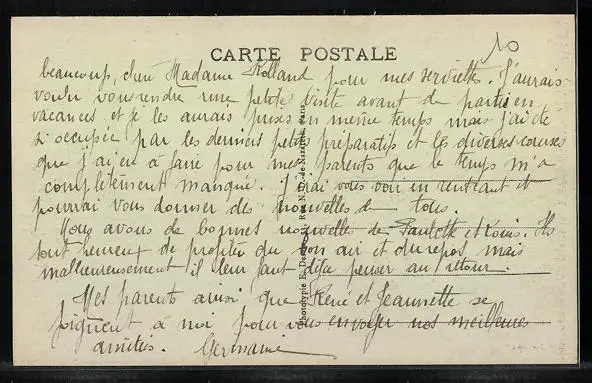 10
CARTE POSTALE
beaucoup, chère Madame Rolland pour mes serviettes. J'aurais
voulu vous rendre une petite visite avant de partir en
vacances et je les aurais prises en même temps mais j'ai été
si occupée par les derniers petits préparatifs et les diverses courses
que j'ai eu à faire pour mes parents que le temps m'a
complètement manqué. J'irai vous voir en rentrant et
pourrai vous donner des nouvelles de tous.
Nous avons de bonnes nouvelles de Paulette et Louis. Ils
sont heureux de profiter du bon air et du repos mais
malheureusement il leur faut déjà penser au retour.
Mes parents ainsi que René et Jeannette se
joignent à moi pour vous envoyer nos meilleures
amitiés. Germaine
Phototypie E. Rue N.-D.-de-Nazareth, Paris